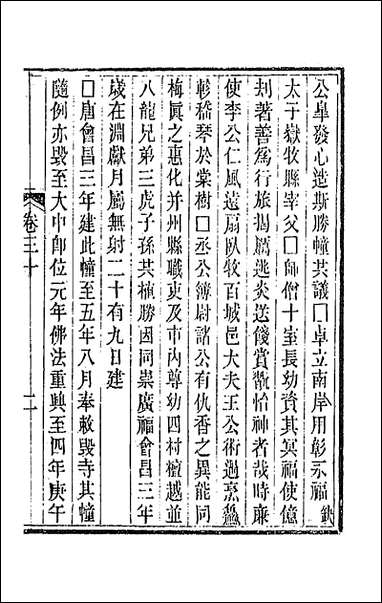 公皐發心造斯勝幢共議□卓立南岸用彰永福
太子嶽牧縣宰父□師僧十室長幼資其冥福使億
刦著善爲行旅揭
送餞賞
怡神者哉時廉
使李公仁風遠扇臥牧百城邑大夫王公術過烹
軫嵇琴於棠樹□丞公簿尉諸公有仇香之異能同
梅眞之惠化并州縣職吏及市內尊幼四村檀越並
八龍兄弟三虎子孫共植勝因同崇廣福會昌三年
歲在淵獻月屬無射二十有九日建
□唐會昌三年建此幢至五年八月奉敕毀寺其幢
隨例亦毀至大中卽位元年佛法重興至四年庚午
卷三十